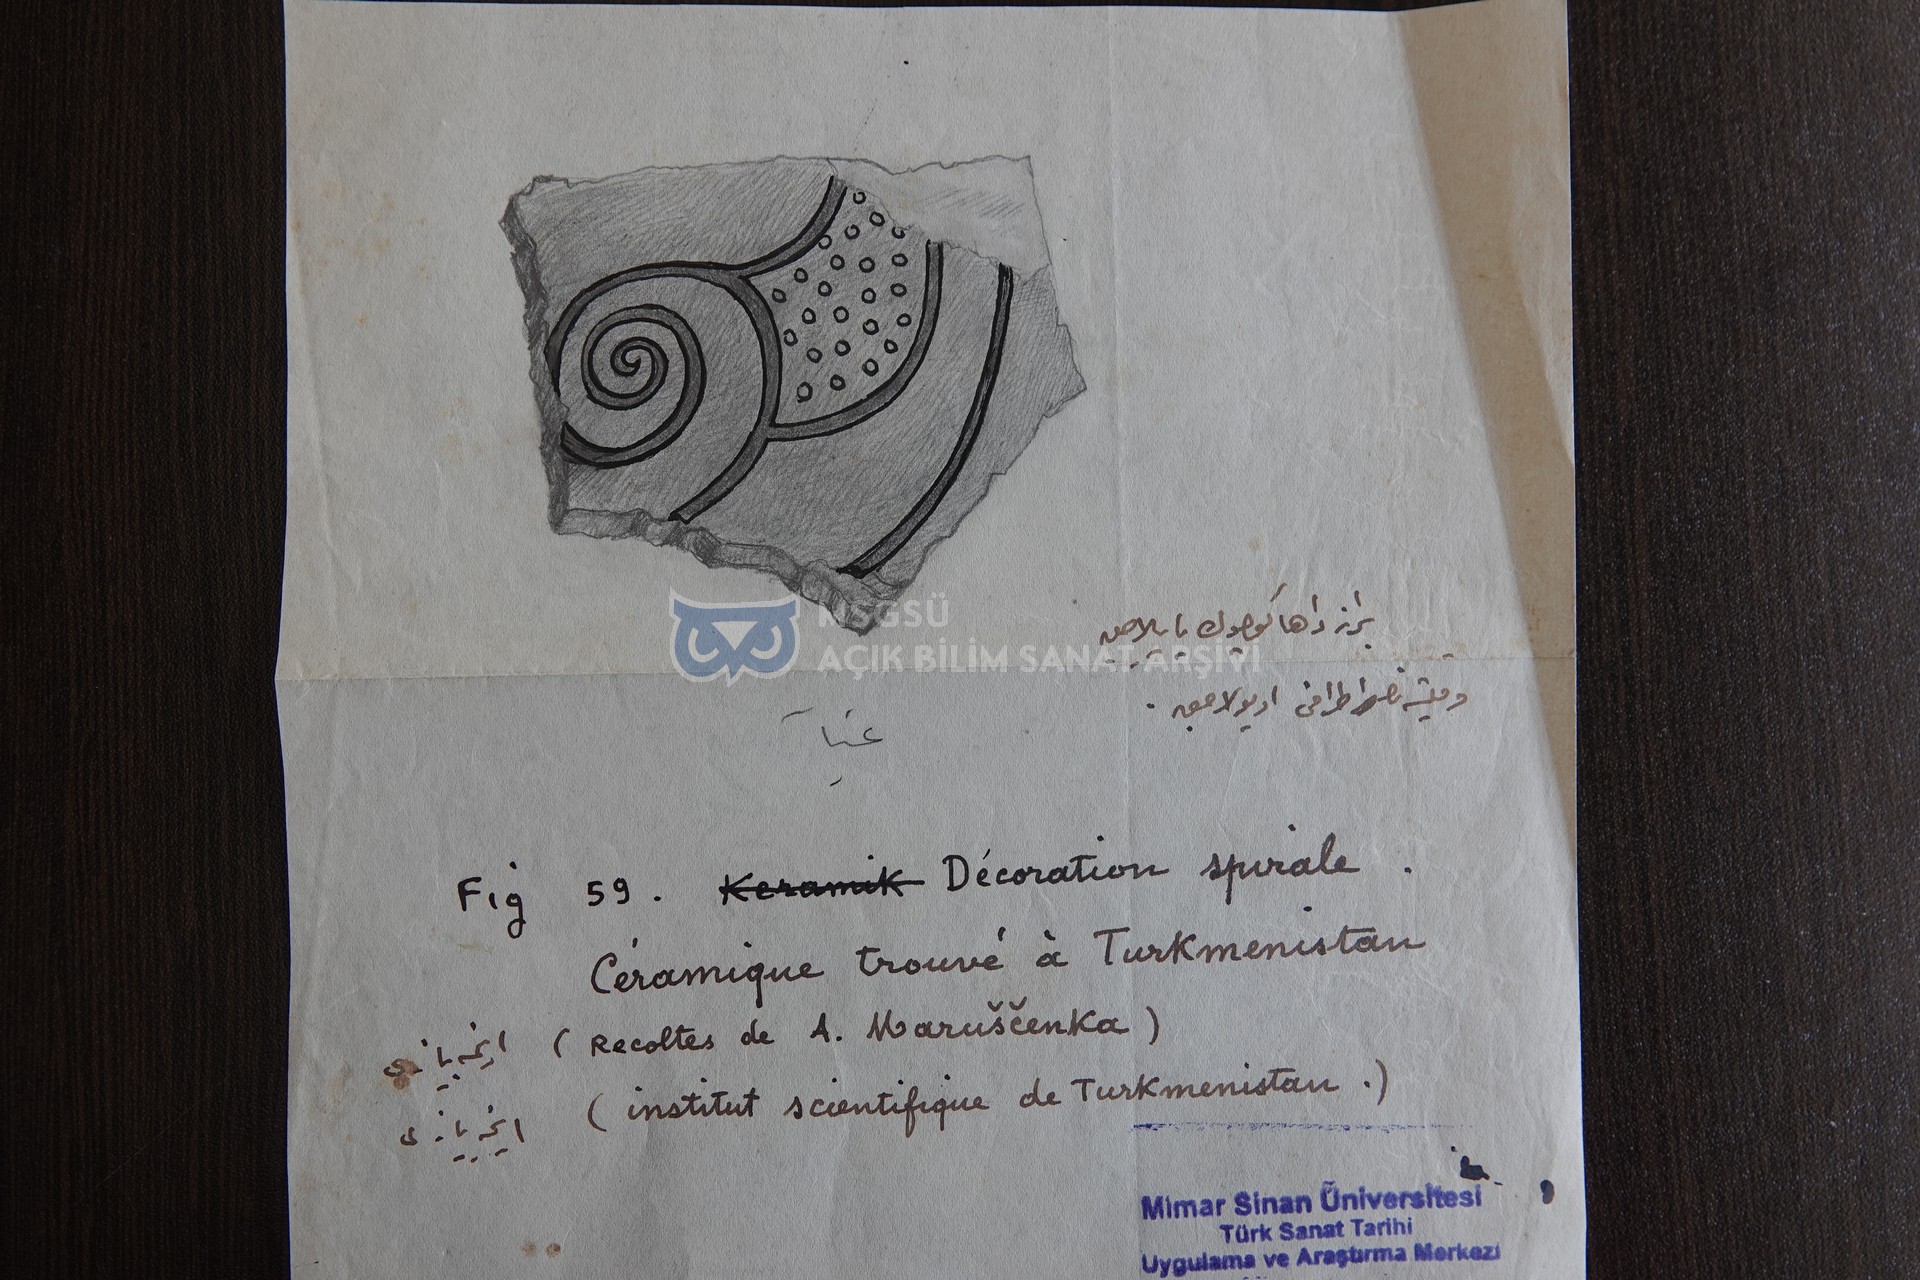 MSGSÜ
AÇIK BİLİM SANAT ARŞİVİ
براز داها كوچوك ياپيلاجق
عيناً
Fig 59. Keramik Décoration spirale.
Céramique trouvé à Turkmenistan
اينجه يازى (Recoltes de A. Maruščenka)
اينجه يازى (institut scientifique de Turkmenistan.)
Mimar Sinan Üniversitesi
Türk Sanat Tarihi
Uygulama ve Araştırma Merkezi